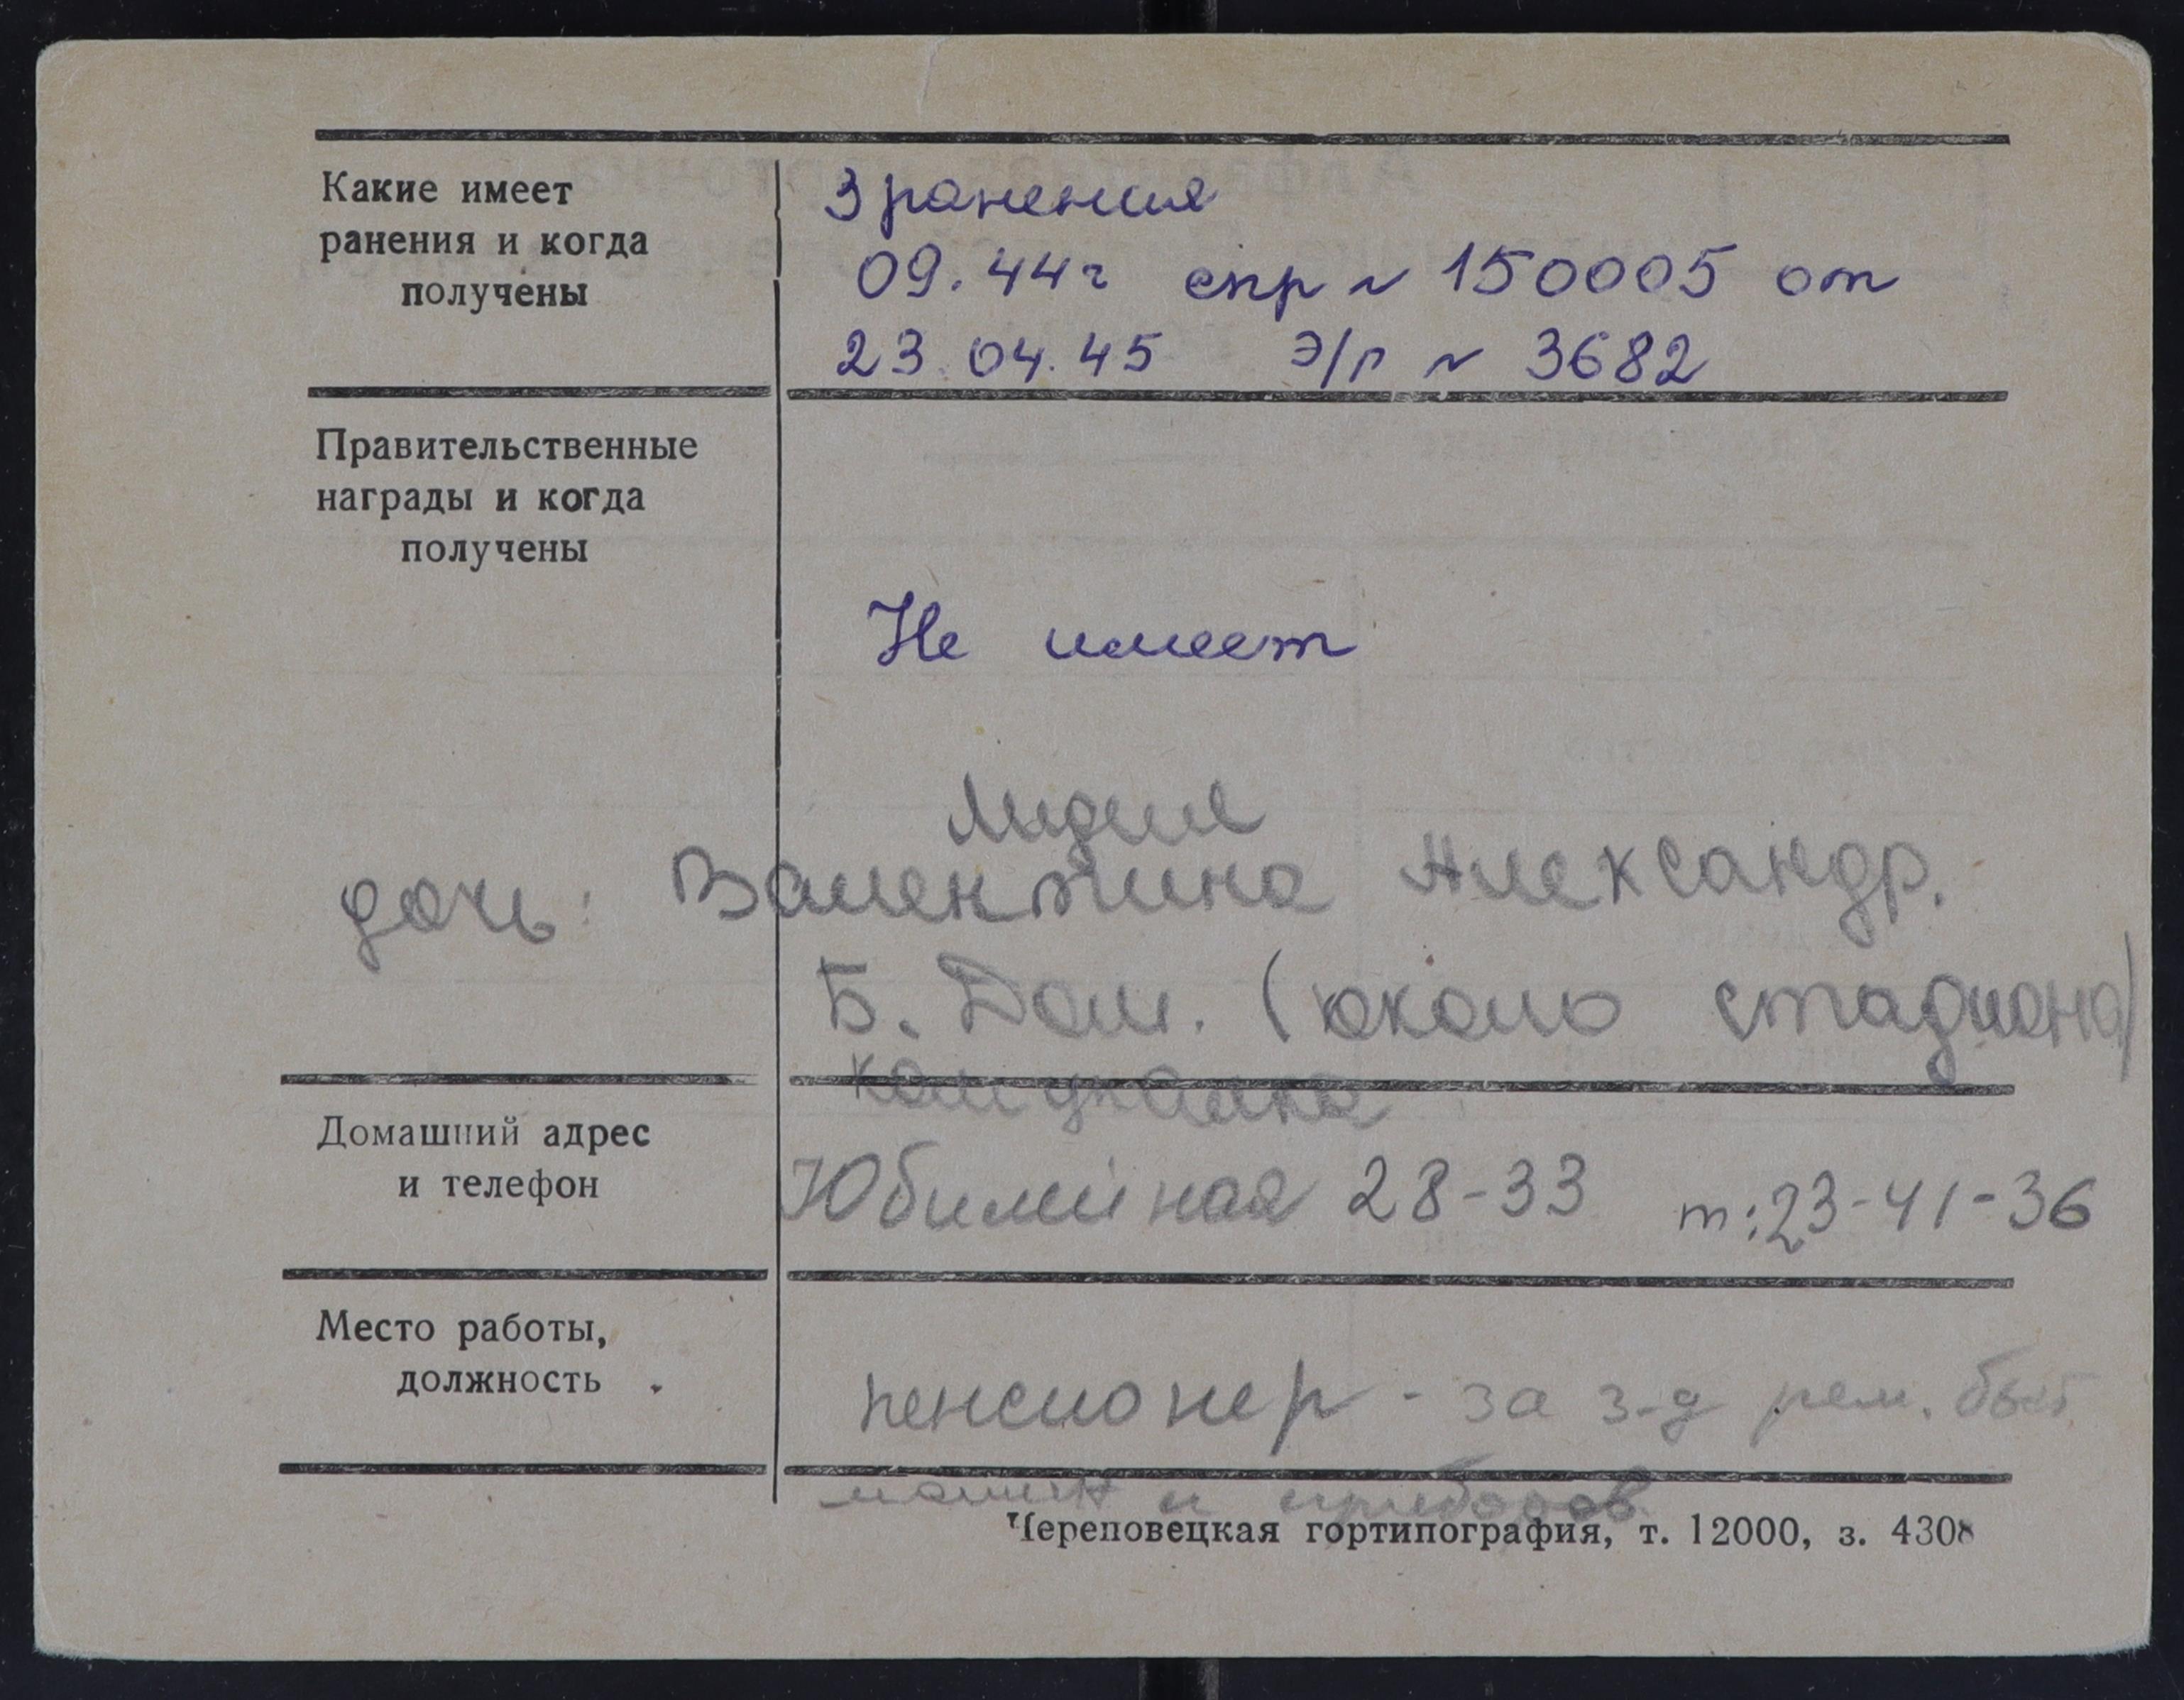 Какие имеет
ранения и когда
получены
3 ранения
09.44г спр № 150005 от
23.04.45 Э/г № 3682
Правительственные
награды и когда
получены
Не имеет
Лидия
дочь: Валентина Александр.
Б. Дом. (около стадиона)
Домашний адрес
и телефон
Юбилейная 28-33 т:23-41-36
Место работы,
должность
пенсионер - за з-д рем. быт.
машин и приборов
Череповецкая гортипография, т. 12000, з. 4308